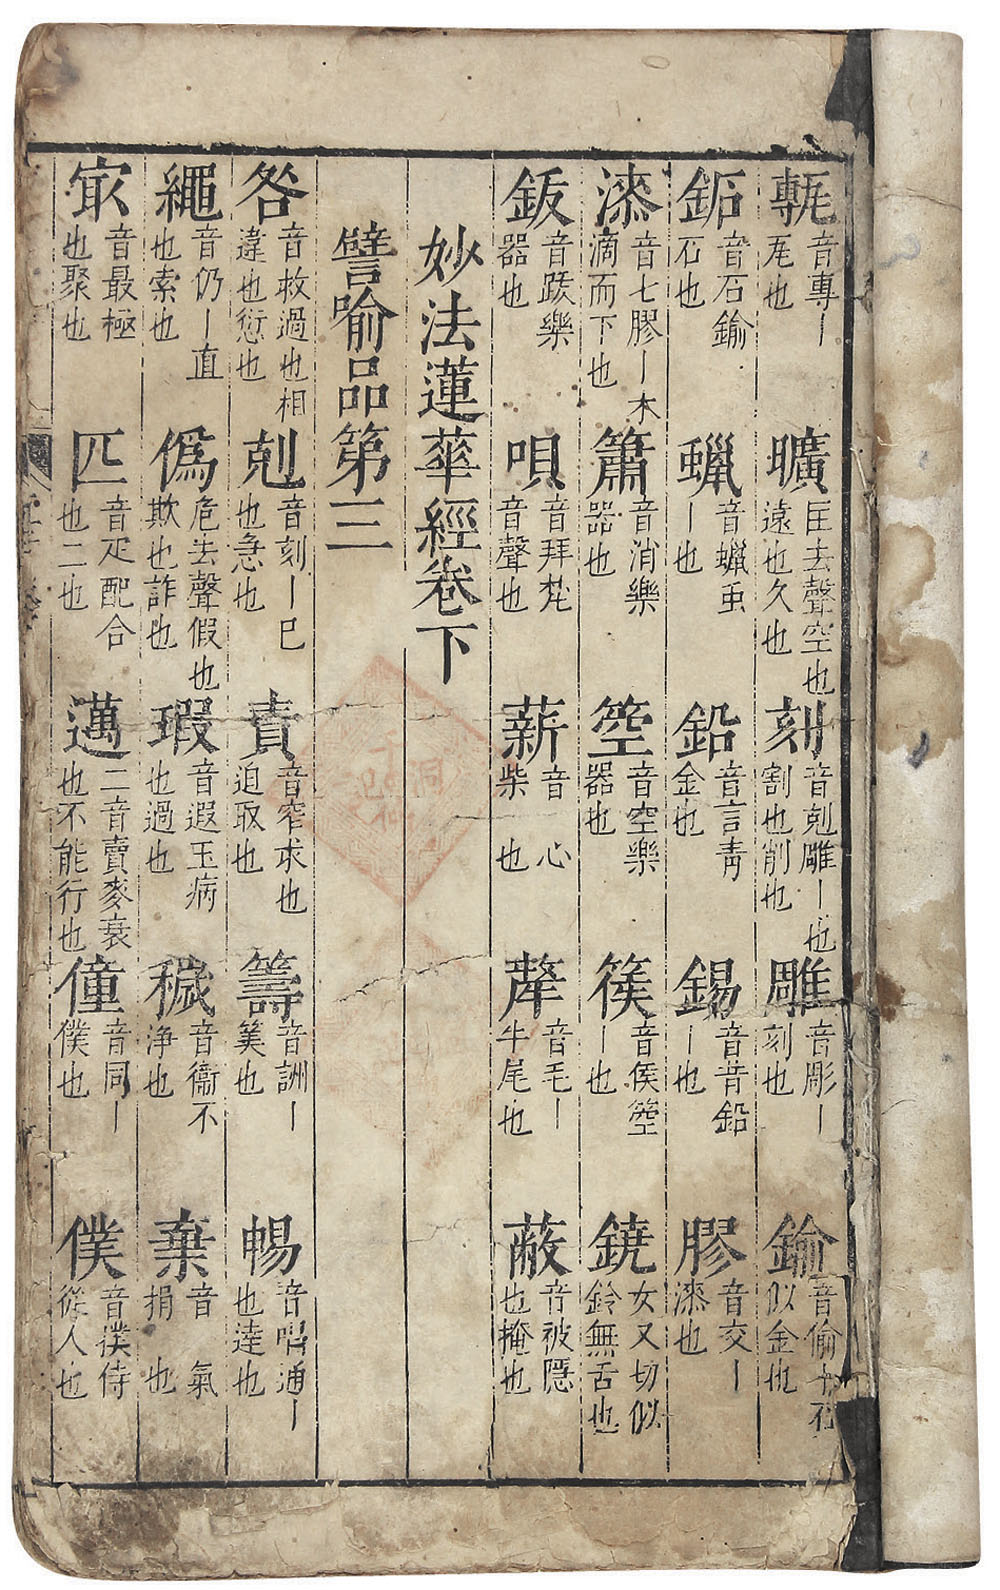 甎音專｜㼘也曠匡去聲空也遠也久也刻音剋雕｜也割也削也雕音彫｜刻也鍮音偷｜石似金也
鉐音石鍮石也蠟音蠟虫｜也鉛音言青金也錫音昔鉛｜也膠音交｜漆也
漆音七膠｜木滴而下也簫音消樂器也箜音空樂器也篌音侯箜｜也鐃女又切似鈴無舌也
鈸音跋樂器也唄音拜梵音聲也薪音心柴也犛音毛｜牛尾也蔽音被隱也掩也
妙法蓮華經卷下
譬喻品第三
咎音救過也相違也愆也剋音刻｜已也急也責音窄求也迫取也籌音詶｜筭也暢音唱通｜也達也
繩音仍｜直也索也僞危去聲假也欺也詐也瑕音遐玉病也過也穢音衞不淨也棄音氣捐也
㝡音最極也聚也匹音疋配合也二也邁二音賣麥衰也不能行也僮音同｜僕也僕音僕侍從人也